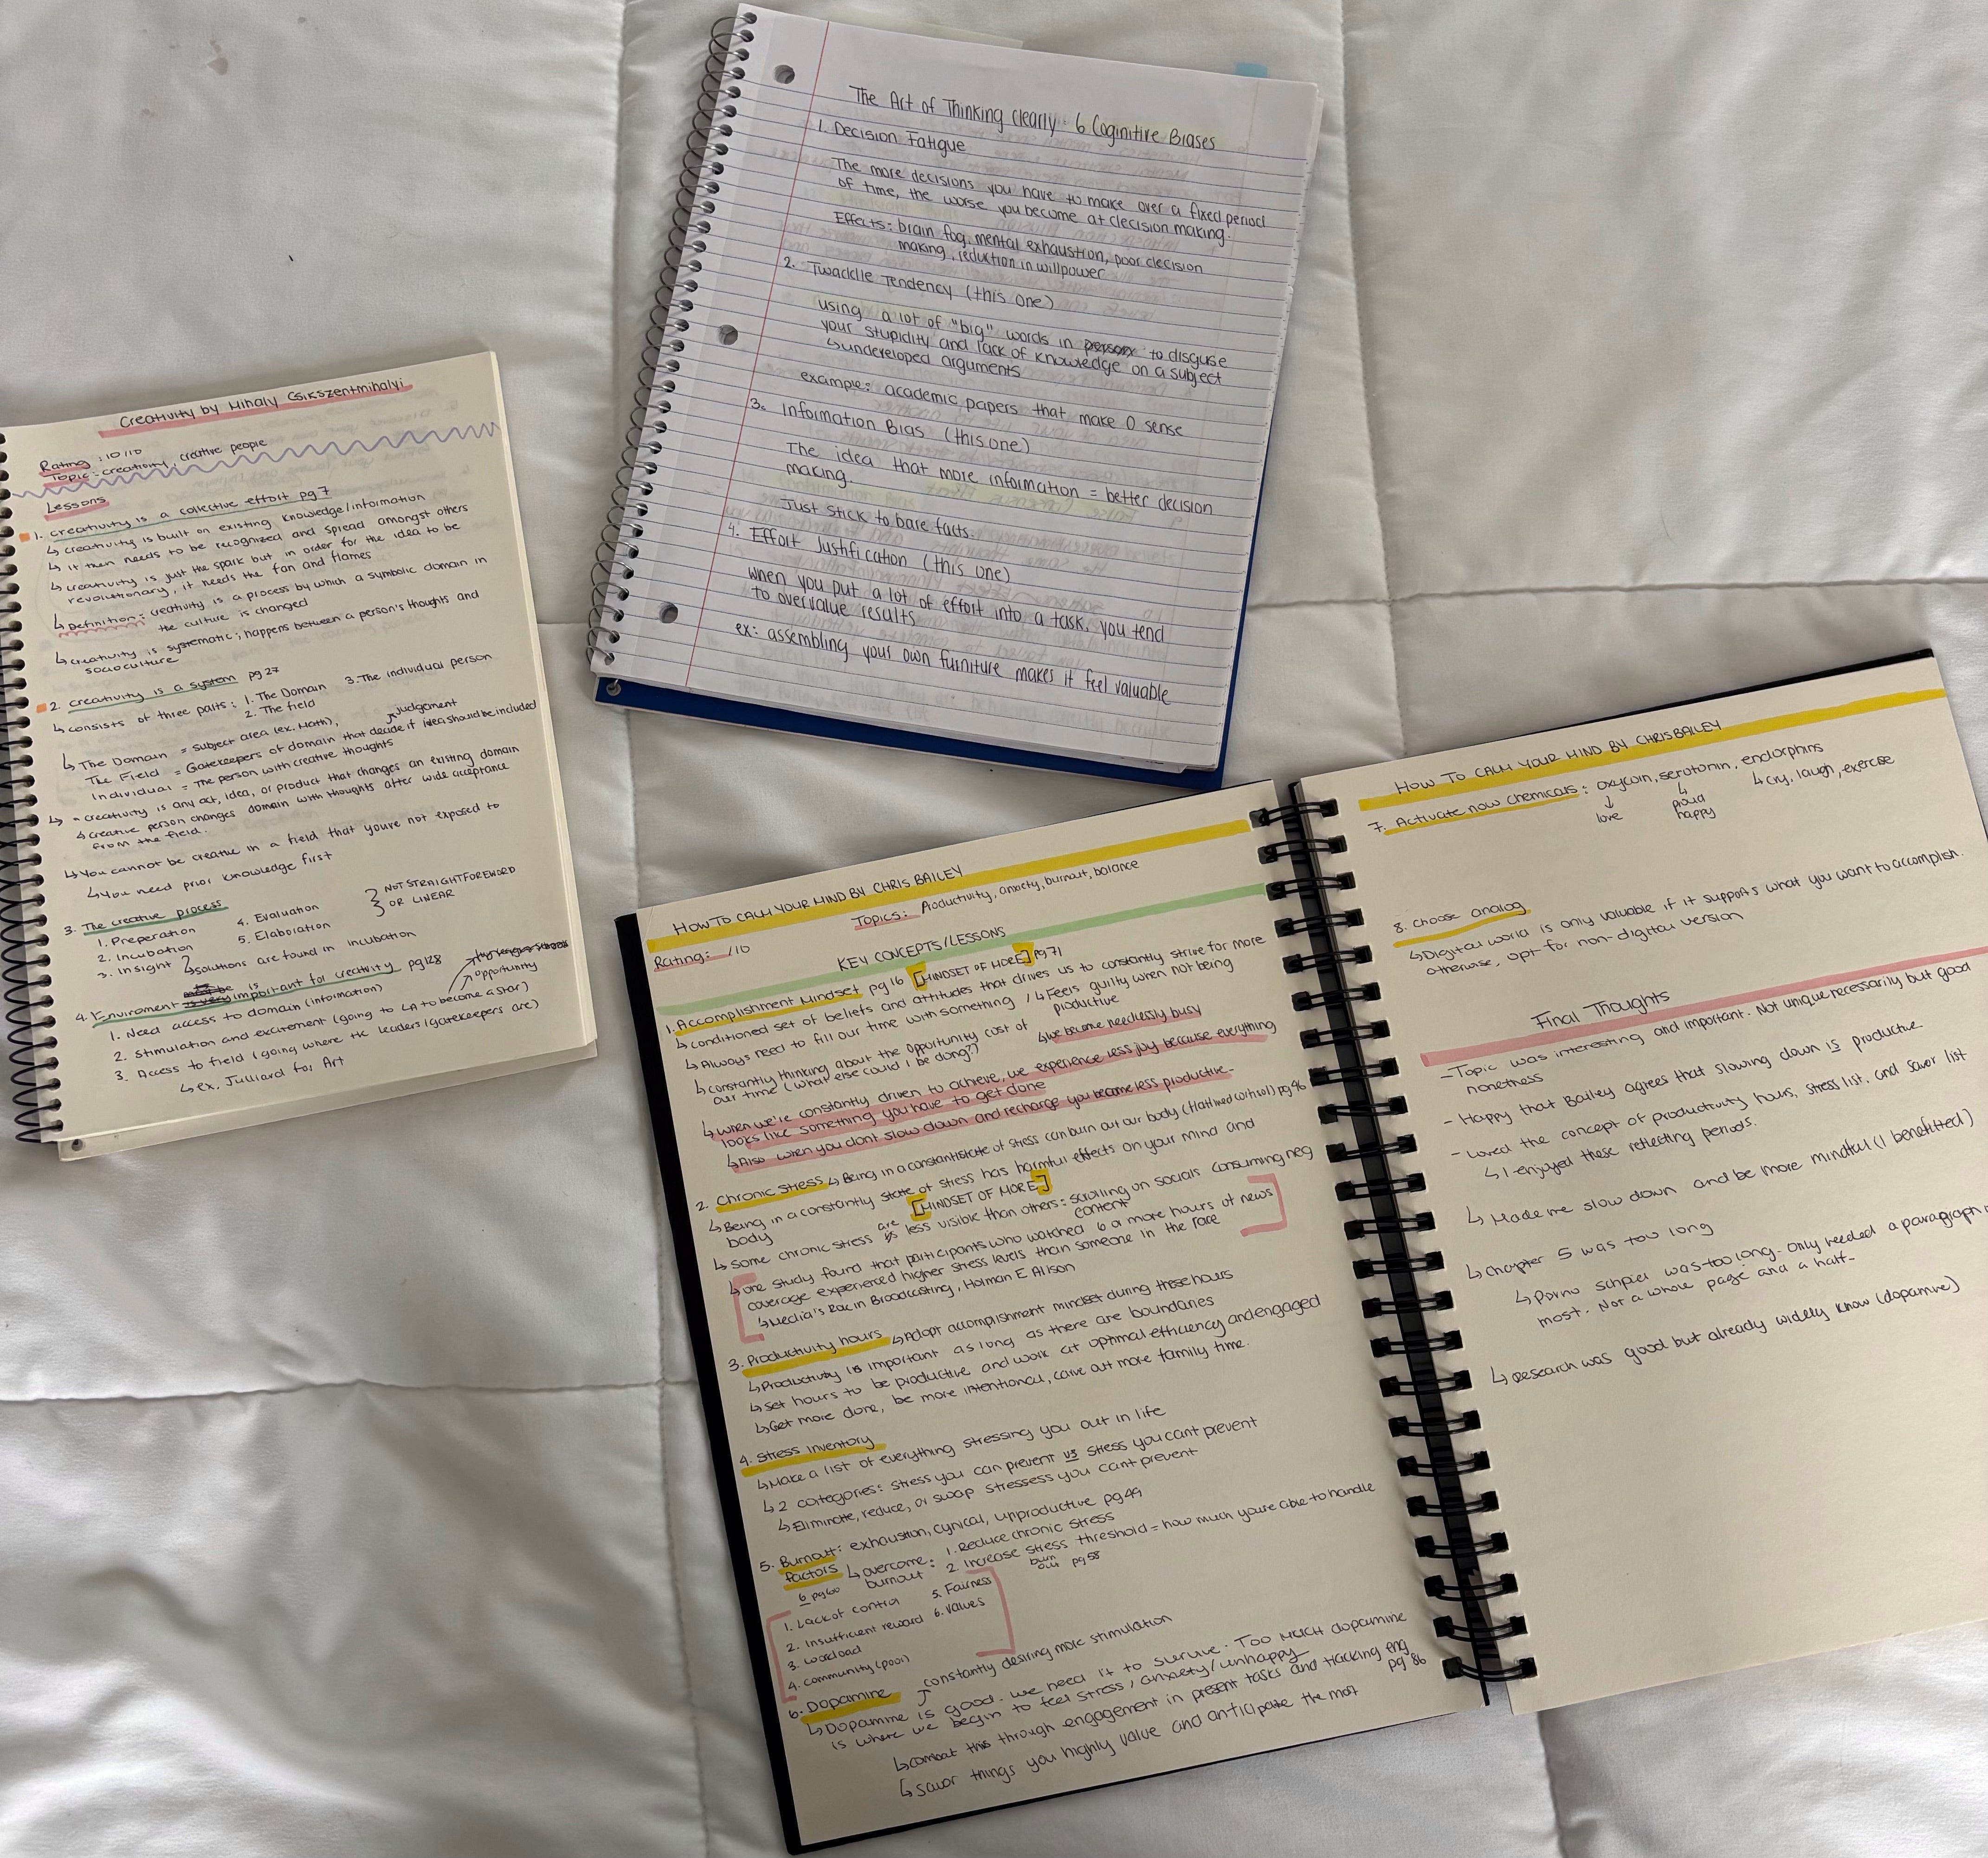 Creativity by Mihaly Csikszentmihalyi
Rating: 10/10
Topic: creativity, creative people
Lessons
1. creativity is a collective effort pg 7
↳ creativity is built on existing knowledge/information
↳ it then needs to be recognized and spread amongst others
↳ creativity is just the spark but in order for the idea to be
revolutionary, it needs the fan and flames
↳ Definition: creativity is a process by which a symbolic domain in
the culture is changed
↳ creativity is systematic; happens between a person's thoughts and
socioculture
2. creativity is a system pg 27
↳ consists of three parts: 1. The Domain 3. The individual person
2. The field
judgement
↳ The Domain = subject area (ex. Math),
The Field = Gatekeepers of domain that decide if idea should be included
Individual = The person with creative thoughts
↳ " creativity is any act, idea, or product that changes an existing domain
↳ creative person changes domain with thoughts after wide acceptance
from the field.
↳ You cannot be creative in a field that youre not exposed to
↳ You need prior knowledge first
3. The creative process
1. Preperation 4. Evaluation } NOT STRAIGHTFOREWORD
2. Incubation 5. Elaboration OR LINEAR
3. Insight ↳ solutions are found in incubation
4. Enviroment is important for creativity pg 128
opportunity
1. Need access to domain (information)
2. Stimulation and excitement (going to LA to become a star)
3. Access to field (going where the leaders/gatekeepers are)
↳ ex. Julliard for Art
The Art of Thinking clearly: 6 Coginitive Biases
1. Decision Fatigue
The more decisions you have to make over a fixed period
of time, the worse you become at decision making.
Effects: brain fog, mental exhaustion, poor decision
making, reduction in willpower
2. Twaddle Tendency (this one)
using a lot of "big" words in person to disguise
your stupidity and lack of knowledge on a subject
↳ undeveloped arguments
example: academic papers that make 0 sense
3. Information Bias (this one)
The idea that more information = better decision
making.
Just stick to bare facts.
4. Effort Justification (this one)
when you put a lot of effort into a task, you tend
to overvalue results
ex: assembling your own furniture makes it feel valuable
HOW TO CALM YOUR MIND BY CHRIS BAILEY
Rating: /10 Topics: Productivity, anxiety, burnout, balance
KEY CONCEPTS/LESSONS
1. Accomplishment Mindset pg 16 [MINDSET OF MORE] pg 71
↳ conditioned set of beliefs and attitudes that drives us to constantly strive for more
↳ Always need to fill our time with something / ↳ Feels guilty when not being
productive
↳ constantly thinking about the opportunity cost of
our time (what else could I be doing?) ↳ we become needlessly busy
↳ when we're constantly driven to achieve, we experience less joy because everything
looks like something you have to get done
↳ Also when you dont slow down and recharge you become less productive-
2. Chronic stress ↳ Being in a constant state of stress can burn out our body (flatlined cortisol) pg 46
↳ Being in a constantly state of stress has harmful effects on your mind and
body [MINDSET OF MORE]
↳ some chronic stress are less visible than others: scrolling on socials consuming neg
content
↳ one study found that participants who watched 6 or more hours of news
coverage experienced higher stress levels than someone in the race
↳ Media's Role in Broadcasting, Holman E Alison
3. Productivity hours ↳ Adopt accomplishment mindset during these hours
↳ Productivity is important as long as there are boundaries
↳ set hours to be productive and work at optimal efficiency and engaged
↳ Get more done, be more intentional, carve out more family time.
4. Stress Inventory
↳ Make a list of everything stressing you out in life
↳ 2 categories: stress you can prevent vs stress you cant prevent
↳ Eliminate, reduce, or swap stressess you cant prevent
5. Burnout: exhaustion, cynical, unproductive pg 49
factors ↳ overcome: 1. Reduce chronic stress
burnout 2. Increase stress threshold = how much youre able to handle
6 pg 60 burn out pg 58
1. Lack of control 5. Fairness
2. Insufficient reward 6. values
3. workload
4. community (poor)
constantly desiring more stimulation
6. Dopamine
↳ Dopamine is good. we need it to survive. TOO MUCH dopamine
is where we begin to feel stress / anxiety / unhappy
↳ combat this through engagement in present tasks and tracking eng
pg 86
↳ savor things you highly value and anticipate the most
HOW TO CALM YOUR MIND BY CHRIS BAILEY
7. Activate now chemicals: oxytcoin, serotonin, endorphins
↓ love ↓ proud happy ↳ cry, laugh, exercise
8. choose analog
↳ Digital world is only valuable if it supports what you want to accomplish.
otherwise, opt for non-digital version
Final Thoughts
- Topic was interesting and important. Not unique necessarily but good
nonetness
- Happy that Bailey agrees that slowing down is productive
- Loved the concept of productivity hours, stress list, and savor list
↳ I enjoyed these reflecting periods.
↳ Made me slow down and be more mindful (I benefitted)
↳ chapter 5 was too long
↳ Porno schpiel was too long. Only needed a paragraph
most. Not a whole page and a half-
↳ Research was good but already widely know (dopamine)